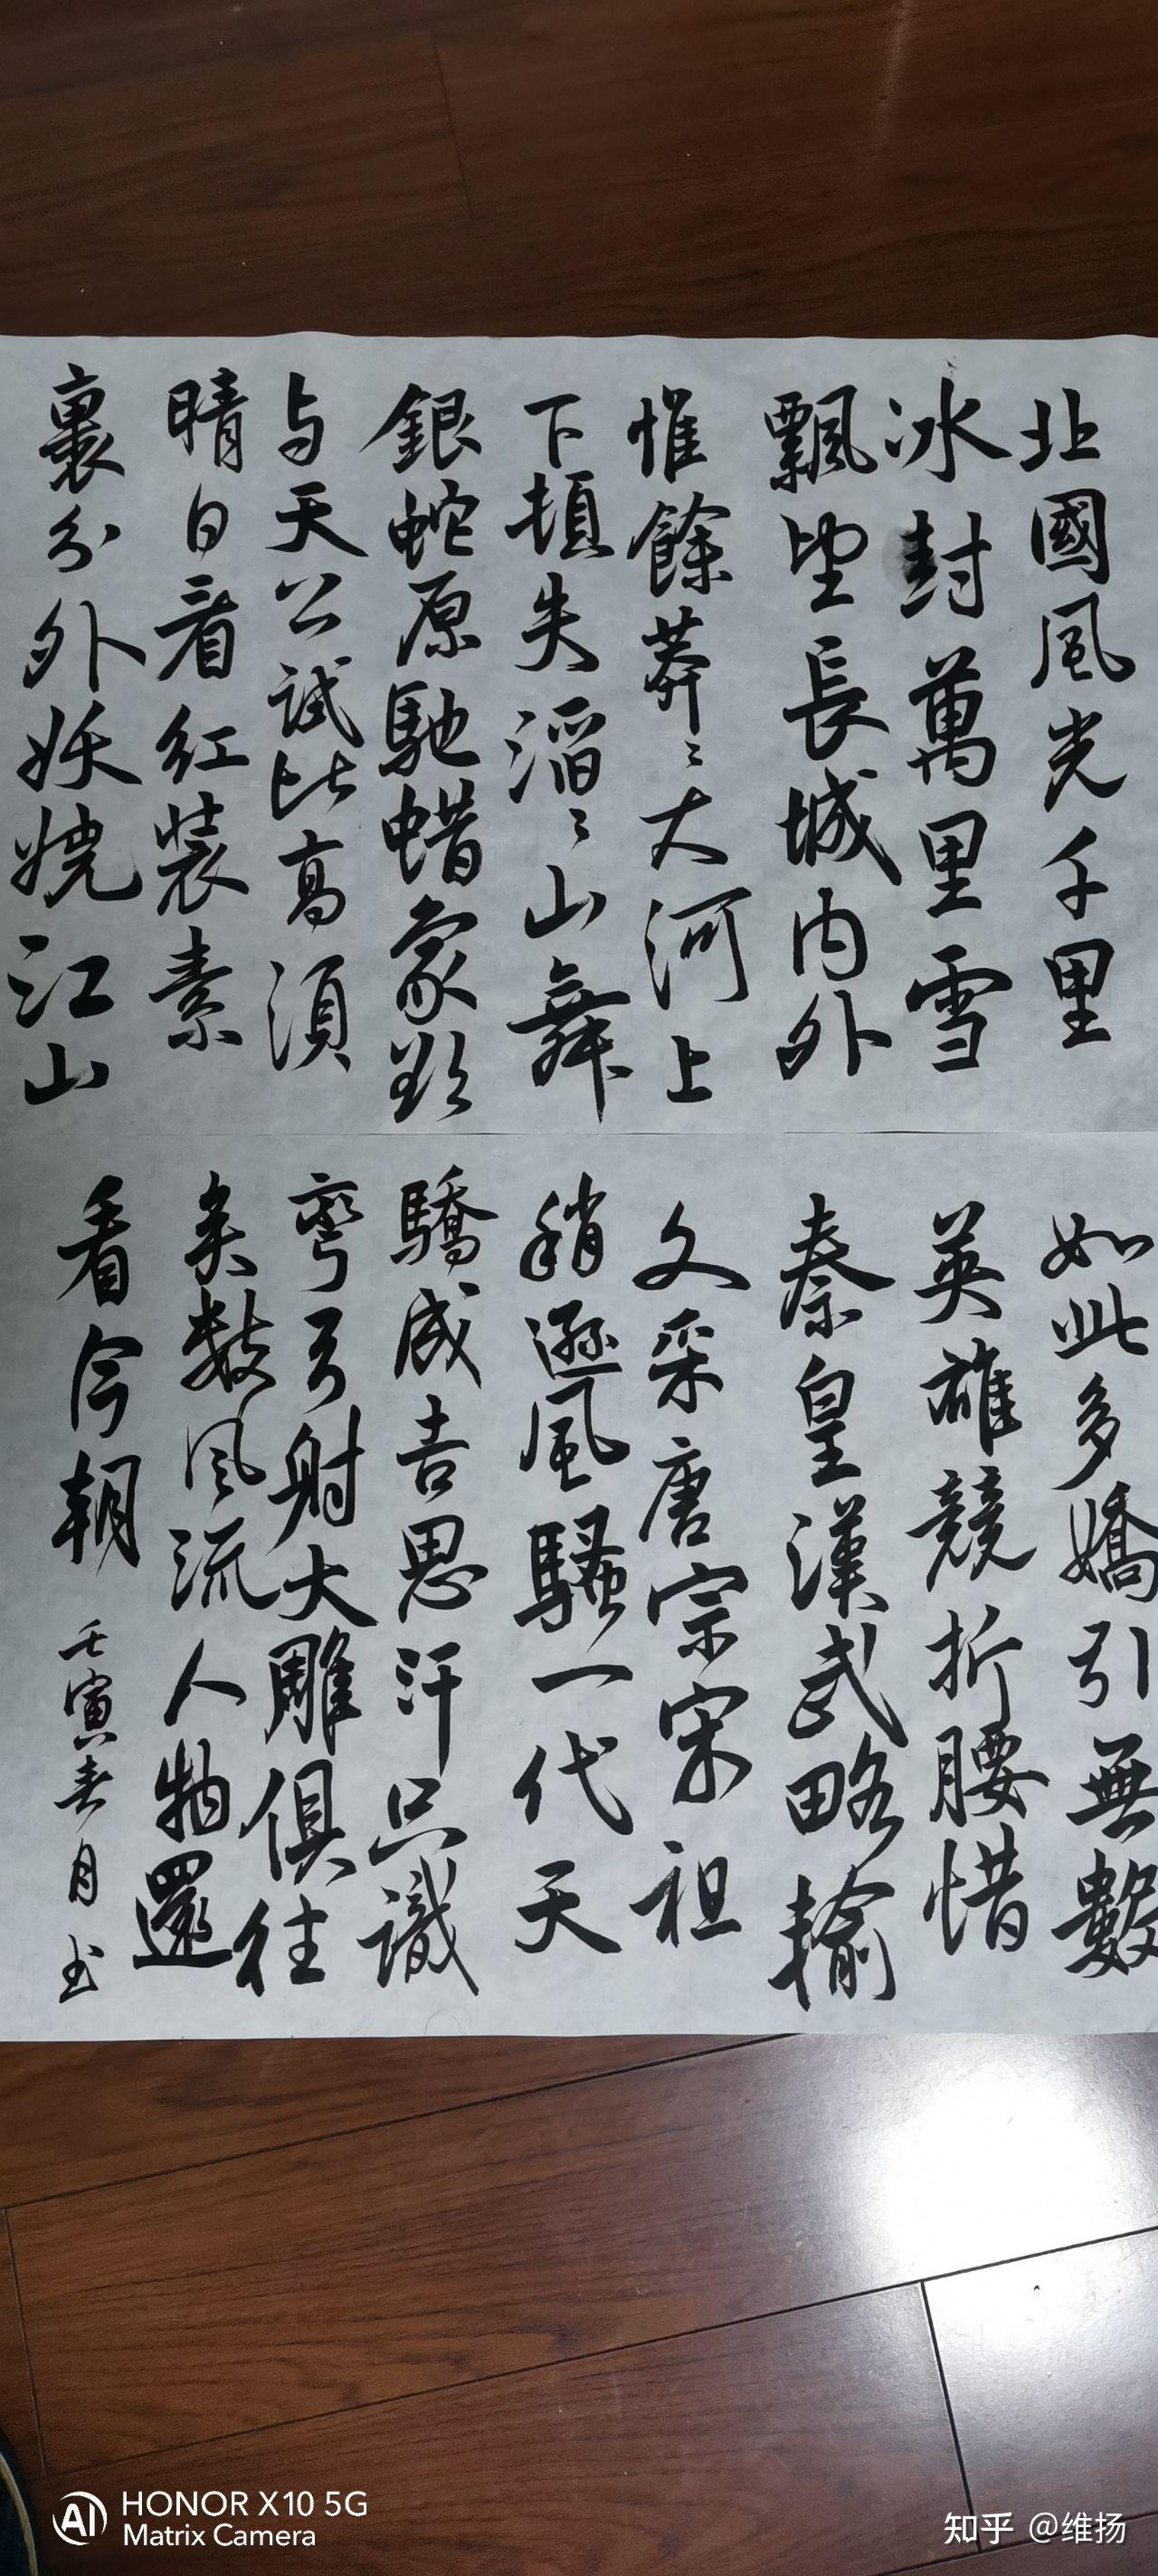 北國風光千里
冰封萬里雪
飄望長城内外
惟餘莽〻大河上
下頓失滔〻山舞
銀蛇原馳蜡象欲
与天公試比高須
晴日看紅装素
裹分外妖嬈江山
如此多嬌引無數
英雄競折腰惜
秦皇漢武略輸
文采唐宗宋祖
稍遜風騷一代天
驕成吉思汗只識
彎弓射大雕俱往
矣数風流人物還
看今朝
壬寅春月书
HONOR X10 5G
Matrix Camera
知乎 @维扬